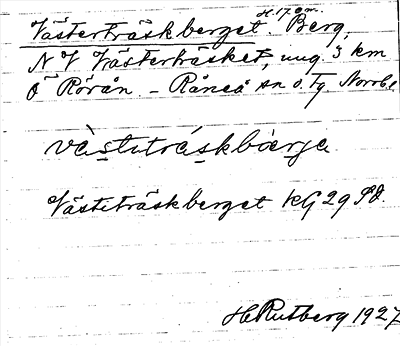 Västerträskberget. H. 17. o m. Berg,
N V Västerträsket, ung. 3 km
Ö Rörån. - Råneå sn o. tg Norrb.
västɩtráskbàrjɐ
Västiträskberget KG 29 Sd.
H Rutberg 1927